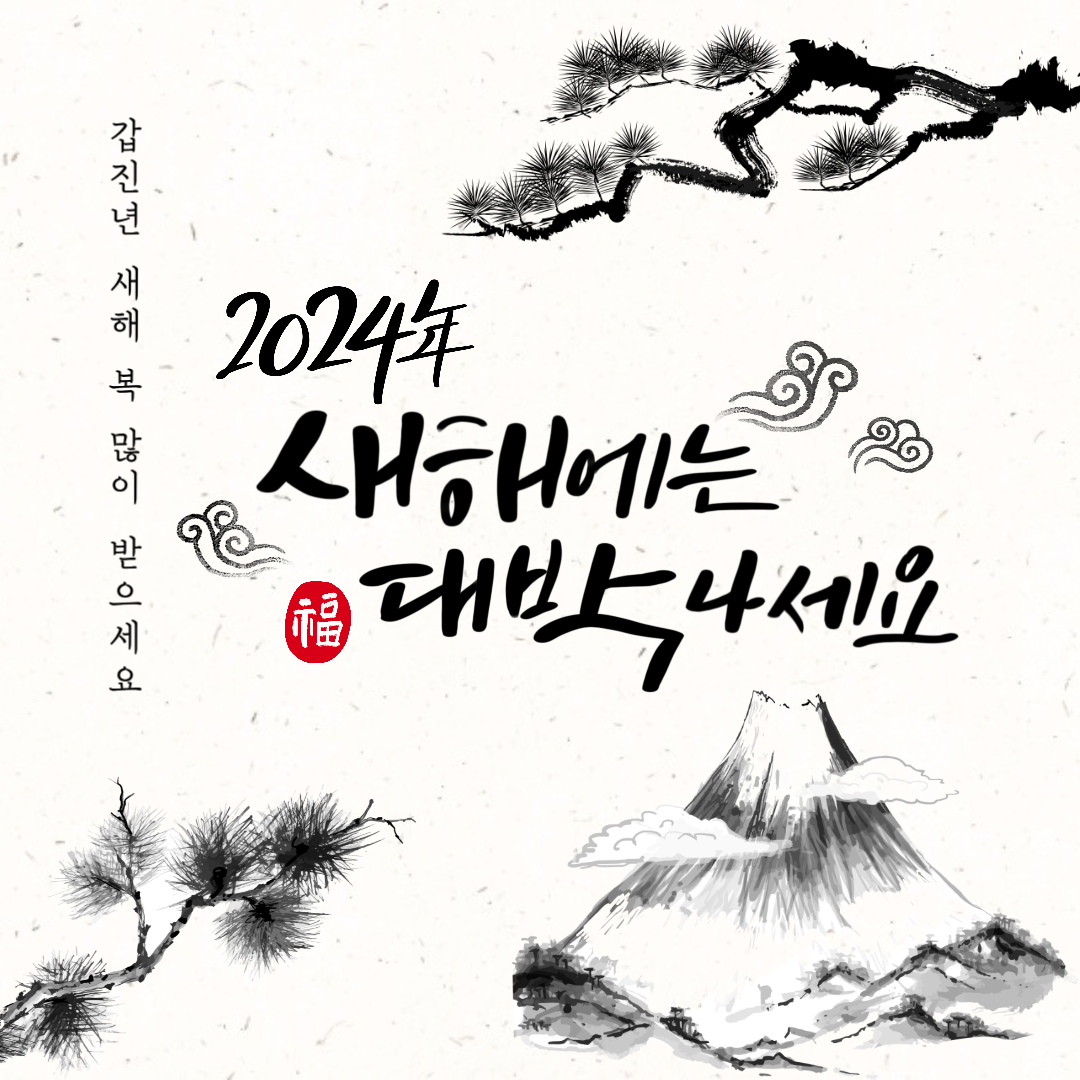 갑진년 새해 복 많이 받으세요
2024年
새해에는
대박나세요
福